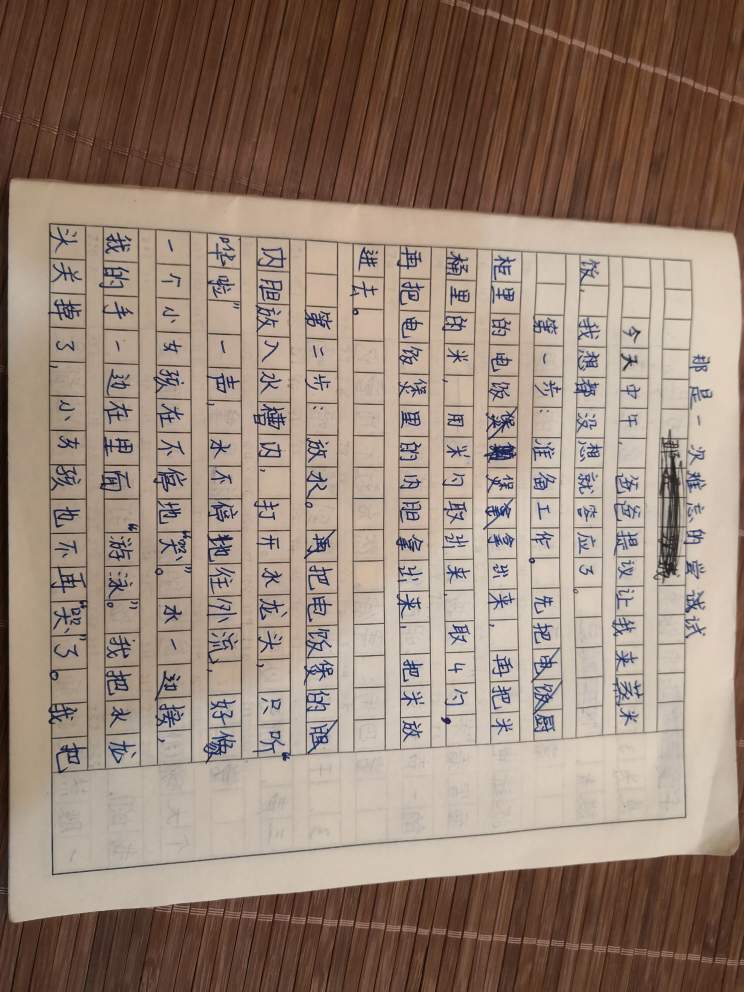 那是一次难忘的尝试试
今天中午，爸爸提议让我来蒸米
饭，我想都没想就答应了。
第一步：准备工作。先把厨
柜里的电饭煲拿出来，再把米
桶里的米，用米勺取出来，取4勺，
再把电饭煲里的内胆拿出来，把米放
进去。
第二步：放水。把电饭煲的
内胆放入水槽内，打开水龙头，只听“
哗啦”一声，水不停地往外流，好像
一个小女孩在不停地“哭”。水一边接，
我的手一边在里面“游泳。”我把水龙
头关掉了，小女孩也不再“哭”了。我把